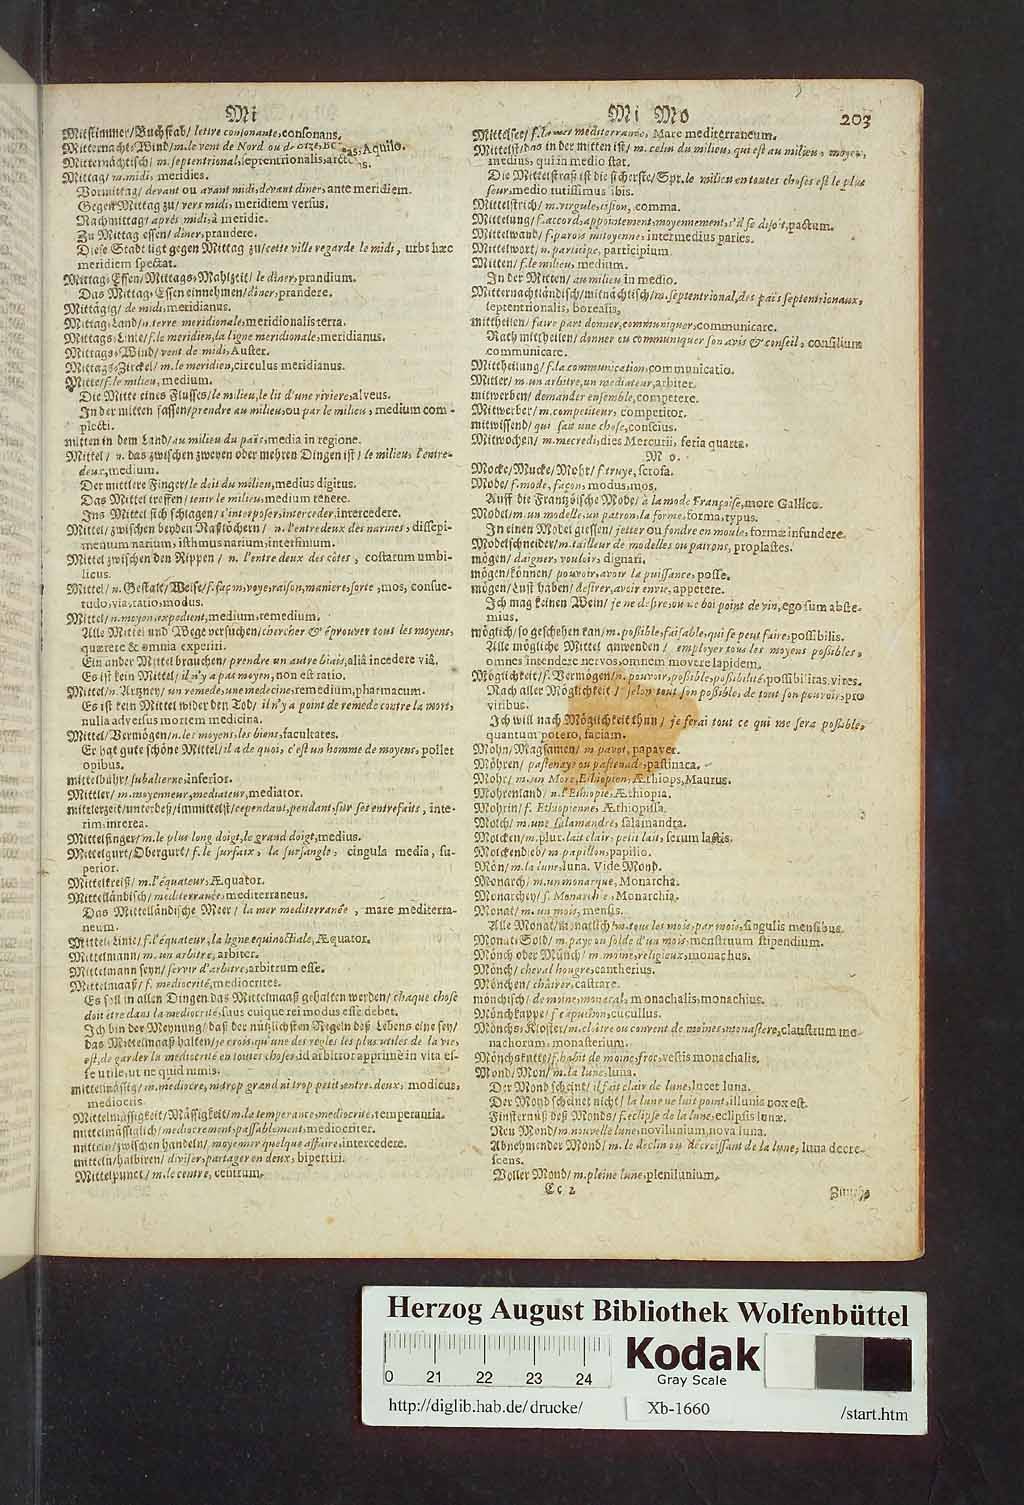 Mi
Mitstimmer/Buchstab/ lettre consonante, consonans.
Mitternachts-Wind/ m. le vent de Nord ou de Aquilo.
Mitternächtisch/ m. septentrional, septentrionalis,
Mittag/ m. midi, meridies.
Vormittag/ devant ou avant midi, devant diner, ante meridiem.
Gegen Mittag zu/ vers midi, meridiem versus.
Nachmittag/ aprés midi, à meridie.
Zu Mittag essen/ diner, prandere.
Diese Stadt ligt gegen Mittag zu/ cette ville regarde le midi, urbs hæc
meridiem spectat.
Mittag-Essen/Mittags-Mahlzeit/ le diner, prandium.
Das Mittag-Essen einnehmen/ diner, prandere.
Mittägig/ de midi, meridianus.
Mittag-Land/ n. terre meridionale, meridionalis terra.
Mittags-Linie/ f. le meridien, la ligne meridionale, meridianus.
Mittags-Wind/ vent de midi, Auster.
Mittags-Zirckel/ m. le meridien, circulus meridianus.
Mitte/ f. le milieu, medium.
Die Mitte eines Flusses/ le milieu, le lit d'une riviere, alveus.
In der mitten fassen/ prendre au milieu, ou par le milieu, medium com-
plecti.
mitten in dem Land/ au milieu du païs, media in regione.
Mittel/ n. das zwischen zweyen oder mehren Dingen ist/ le milieu, l'entre-
deux, medium.
Der mittlere Finger/ le doit du milieu, medius digitus.
Das Mittel treffen/ tenir le milieu, medium tenere.
Ins Mittel sich schlagen/ s'interposer, interceder, intercedere.
Mittel/ zwischen beyden Naßlöchern/ n. l'entredeux des narines, dissepi-
mentum narium, isthmus narium, interfinium.
Mittel zwischen den Rippen/ n. l'entre deux des côtes, costarum umbi-
licus.
Mittel/ n. Gestalt/Weise/ f. façon, voye, raison, maniere, sorte, mos, consue-
tudo, via, ratio, modus.
Mittel/ n. moyen, expedient, medium, remedium.
Alle Mittel und Wege versuchen/ chercher & éprouver tous les moyens,
quærere & omnia experiri.
Ein ander Mittel brauchen/ prendre un autre biais, aliâ incedere viâ.
Es ist kein Mittel/ il n'y a pas moyen, non est ratio.
Mittel/ n. Artzney/ un remede, une medecine, remedium, pharmacum.
Es ist kein Mittel wider den Tod/ il n'y a point de remede contre la mort,
nulla adversus mortem medicina.
Mittel/ Vermögen/ n. les moyens, les biens, facultates.
Er hat gute schöne Mittel/ il a de quoi, c'est un homme de moyens, pollet
opibus.
mittelbahr/ subalterne, inferior.
Mittler/ m. moyenneur, mediateur, mediator.
mittlerzeit/unterdeß/immittelst/ cependant, pendant, sur ces entrefaits, inte-
rim, interea.
Mittelfinger/ m. le plus long doigt, le grand doigt, medius.
Mittelgurt/Obergurt/ f. le surfaix, la sursangle, cingula media, su-
perior.
Mittelkreiß/ m. l'équateur, Æquator.
Mittelländisch/ mediterranée, mediterraneus.
Das Mittelländische Meer/ la mer mediterranée, mare mediterra-
neum.
Mittel-Linie/ f. l'équateur, la ligne equinoctiale, Æquator.
Mittelmann/ m. un arbitre, arbiter.
Mittelmann seyn/ servir d'arbitre, arbitrum esse.
Mittelmaaß/ f. mediocrité, mediocritas.
Es soll in allen Dingen das Mittelmaaß gehalten werden/ chaque chose
doit étre dans la mediocrité, suus cuique rei modus esse debet.
Ich bin der Meynung/ daß der nützlichsten Regeln deß Lebens eine sey/
das Mittelmaaß halten/ je crois, qu'une des regles les plus utiles de la vie,
est, de garder la mediocrité en toutes choses, id arbitror apprimè in vita es-
se utile, ut ne quid nimis.
mittelmässig/ m. mediocre, ni trop grand ni trop petit, entre-deux, modicus,
mediocris.
Mittelmässigkeit/Mässigkeit/ m. la temperance, mediocrité, temperantia.
mittelmässiglich/ mediocrement, passablement, mediocriter.
mitteln/zwischen handeln/ moyenner quelque affaire, intercedere.
mitteln/halbiren/ diviser, partager en deux, bipertiri.
Mittelpunct/ m. le centre, centrum.
Mi Mo 203
Mittelsee/ f. la mer mediterranée, Mare mediterraneum.
Mittelst/das in der mitten ist/ m. celui du milieu, qui est au milieu, moyen,
medius, qui in medio stat.
Die Mittelstraß ist die sicherste/Spr. le milieu en toutes choses est le plus
seur, medio tutissimus ibis.
Mittelstrich/ m. virgule, cision, comma.
Mittelung/ f. accord, appointement, moyennement, s'il se disoit, pactum.
Mittelwand/ f. parois mitoyenne, intermedius paries.
Mittelwort/ n. participe, participium.
Mitten/ f. le milieu, medium.
In der Mitten/ au milieu in medio.
Mitternachtländisch/mitnächtisch/ m. septentrional, des païs septentrionaux,
septentrionalis, borealis.
mittheilen/ faire part donner, communiquer, communicare.
Rath mittheilen/ donner ou communiquer son avis & conseil, consilium
communicare.
Mittheilung/ f. la communication, communicatio.
Mitler/ m. un arbitre, un mediateur, arbiter.
mitwerben/ demander ensemble, competere.
Mitwerber/ m. competiteur, competitor.
mitwissend/ qui sait une chose, conscius.
Mitwochen/ m. mecredi, dies Mercurii, feria quarta.
Mo.
Mocke/Mucke/Mohr/ f. truye, scrofa.
Mode/ f. mode, façon, modus, mos.
Auff die Frantzösische Mode/ à la mode Françoise, more Gallico.
Model/ m. un modelle, un patron, la forme, forma, typus.
In einen Model giessen/ jetter ou fondre en moule, formæ infundere.
Modelschneider/ m. tailleur de modelles ou patrons, proplastes.
mögen/ daigner, vouloir, dignari.
mögen/können/ pouvoir, avoir la puissance, posse.
mögen/Lust haben/ desirer, avoir envie, appetere.
Ich mag keinen Wein/ je ne desire, ou ne boi point de vin, ego sum abste-
mius.
möglich/so geschehen kan/ m. possible, faisable, qui se peut faire, possibilis.
Alle mögliche Mittel anwenden/ employer tous les moyens possibles,
omnes intendere nervos, omnem movere lapidem.
Möglichkeit/ f. Vermögen/ n. pouvoir, possible, possibilité, possibilitas, vires.
Nach aller Möglichkeit/ selon tout son possible, de tout son pouvoir, pro
viribus.
Ich will nach Möglichkeit thun/ je ferai tout ce qui me sera possible,
quantum potero, faciam.
Mohn/Magsamen/ m. pavot, papaver.
Möhren/ pastenaye ou pastenade, pastinaca.
Mohr/ m. un More, Ethiopien, Æthiops, Maurus.
Mohrenland/ n. l'Ethiopie, Æthiopia.
Mohrin/ f. Ethiopienne, Æthiopissa.
Molch/ m. une salamandre, salamandra.
Molcken/ m. plur. lait clair, petit lait, serum lactis.
Molckendieb/ m. papillon, papilio.
Mon/ m. la lune, luna. Vide Mond.
Monarch/ m. un monarque, Monarcha.
Monarchey/ f. Monarchie, Monarchia.
Monat/ m. un mois, mensis.
Alle Monat/monatlich/ m. tous les mois, par mois, singulis mensibus.
Monat-Sold/ m. paye ou solde d'un mois, menstruum stipendium.
Mönch oder Münch/ m. moine, religieux, monachus.
Mönch/ cheval hongre, cantherius.
Mönchen/ châtrer, castrare.
mönchisch/ de moine, monacal, monachalis, monachius.
Mönchkappe/ f. capuchon, cucullus.
Mönchs-Kloster/ m. cloître ou convent de moines, monastere, claustrum mo-
nachorum, monasterium.
Mönchskutte/ f. habit de moine, froc, vestis monachalis.
Mond/Mon/ m. la lune, luna.
Der Mond scheint/ il fait clair de lune, lucet luna.
Der Mond scheinet nicht/ la lune ne luit point, illunis nox est.
Finsternuß deß Monds/ f. eclipse de la lune, eclipsis lunæ.
Neu Mond/ m. nouvelle lune, novilunium, nova luna.
Abnehmender Mond/ m. le declin ou décroissant de la lune, luna decre-
scens.
Voller Mond/ m. pleine lune, plenilunium.
Cc 2
Herzog August Bibliothek Wolfenbüttel
0 21 22 23 24
Kodak
Gray Scale
http://diglib.hab.de/drucke/ Xb-1660 /start.htm